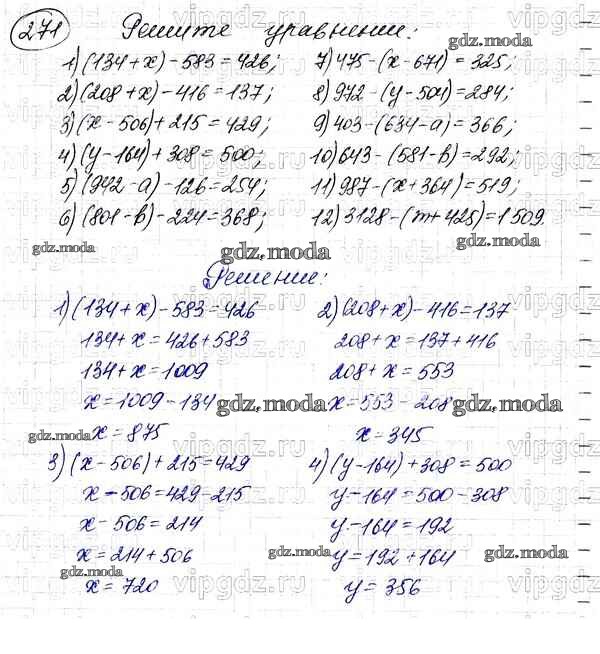 271 Решите уравнения:
1) (134+x)-583=426;
2) (208+x)-416=137;
3) (x-506)+215=429;
4) (y-164)+308=500;
5) (942-a)-126=254;
6) (801-b)-224=368;
7) 475-(x-671)=325;
8) 972-(y-504)=284;
9) 403-(634-a)=366;
10) 643-(581-b)=292;
11) 987-(x+364)=519;
12) 3128-(m+425)=1509.
Решение:
1) (134+x)-583=426
134+x=426+583
134+x=1009
x=1009-134
x=875
2) (208+x)-416=137
208+x=137+416
208+x=553
x=553-208
x=345
3) (x-506)+215=429
x-506=429-215
x-506=214
x=214+506
x=720
4) (y-164)+308=500
y-164=500-308
y-164=192
y=192+164
y=356
gdz.moda
vipgdz.ru